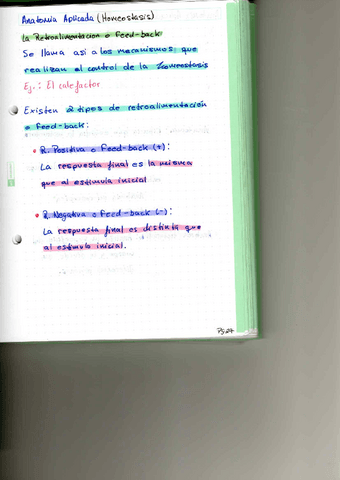 Anatomía Aplicada (Homeostasis)
La Retroalimentación o Feed-back
Se llama así a los mecanismos; que
realizan el control de la Homeostasis
Ej.: El calefactor
Existen 2 tipos de retroalimentación
o feed-back:
R. Positiva o Feed-back (+):
La respuesta final es la misma
que al estímulo inicial
R. Negativa o Feed-back (-):
La respuesta final es distinta que
al estímulo inicial.